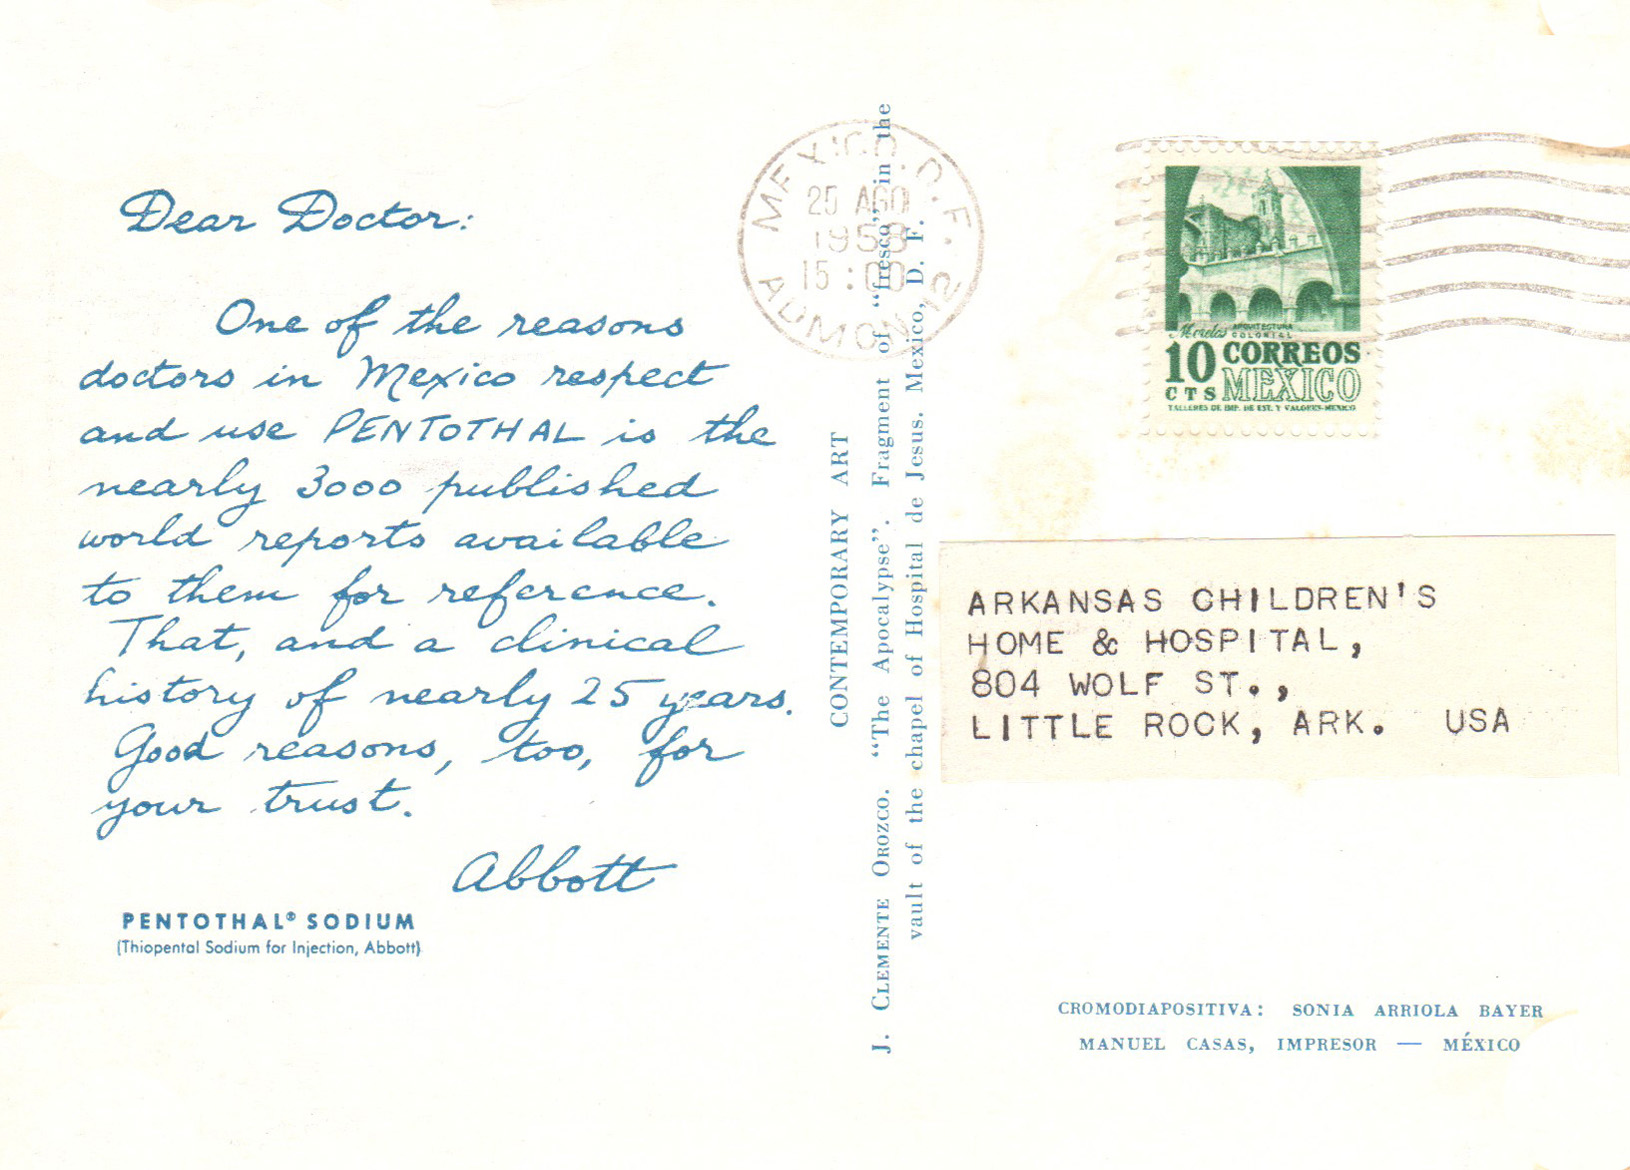 Dear Doctor:
One of the reasons
doctors in Mexico respect
and use PENTOTHAL is the
nearly 3000 published
world reports available
to them for reference.
That, and a clinical
history of nearly 25 years.
Good reasons, too, for
your trust.
Abbott
PENTOTHAL® SODIUM
(Thiopental Sodium for Injection, Abbott)
CONTEMPORARY ART
J. CLEMENTE OROZCO. "The Apocalypse". Fragment of "fresco" in the
vault of the chapel of Hospital de Jesus. Mexico, D. F.
MEXICO. D. F.
25 AGO
1958
15:00
ADMON 12
Morelos ARQUITECTURA
COLONIAL
10 CORREOS
CTS MEXICO
TALLERES DE IMP. DE EST. Y VALORES-MEXICO
ARKANSAS CHILDREN'S
HOME & HOSPITAL,
804 WOLF ST.,
LITTLE ROCK, ARK. USA
CROMODIAPOSITIVA: SONIA ARRIOLA BAYER
MANUEL CASAS, IMPRESOR — MÉXICO